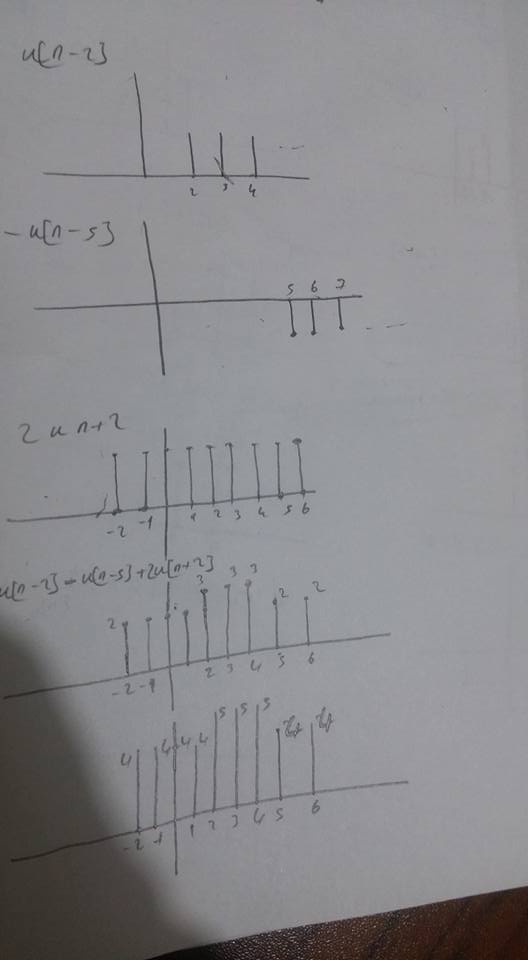 u[n-2]
2 3 4
-u[n-5]
5 6 7
2 u n+2
-2 -1 1 2 3 4 5 6
u[n-2] - u[n-5] + 2u[n+2]
2 3 3 3 2 2
-2 -1 2 3 4 5 6
4 4 4 4 5 5 5
-2 -1 1 2 3 4 5 6